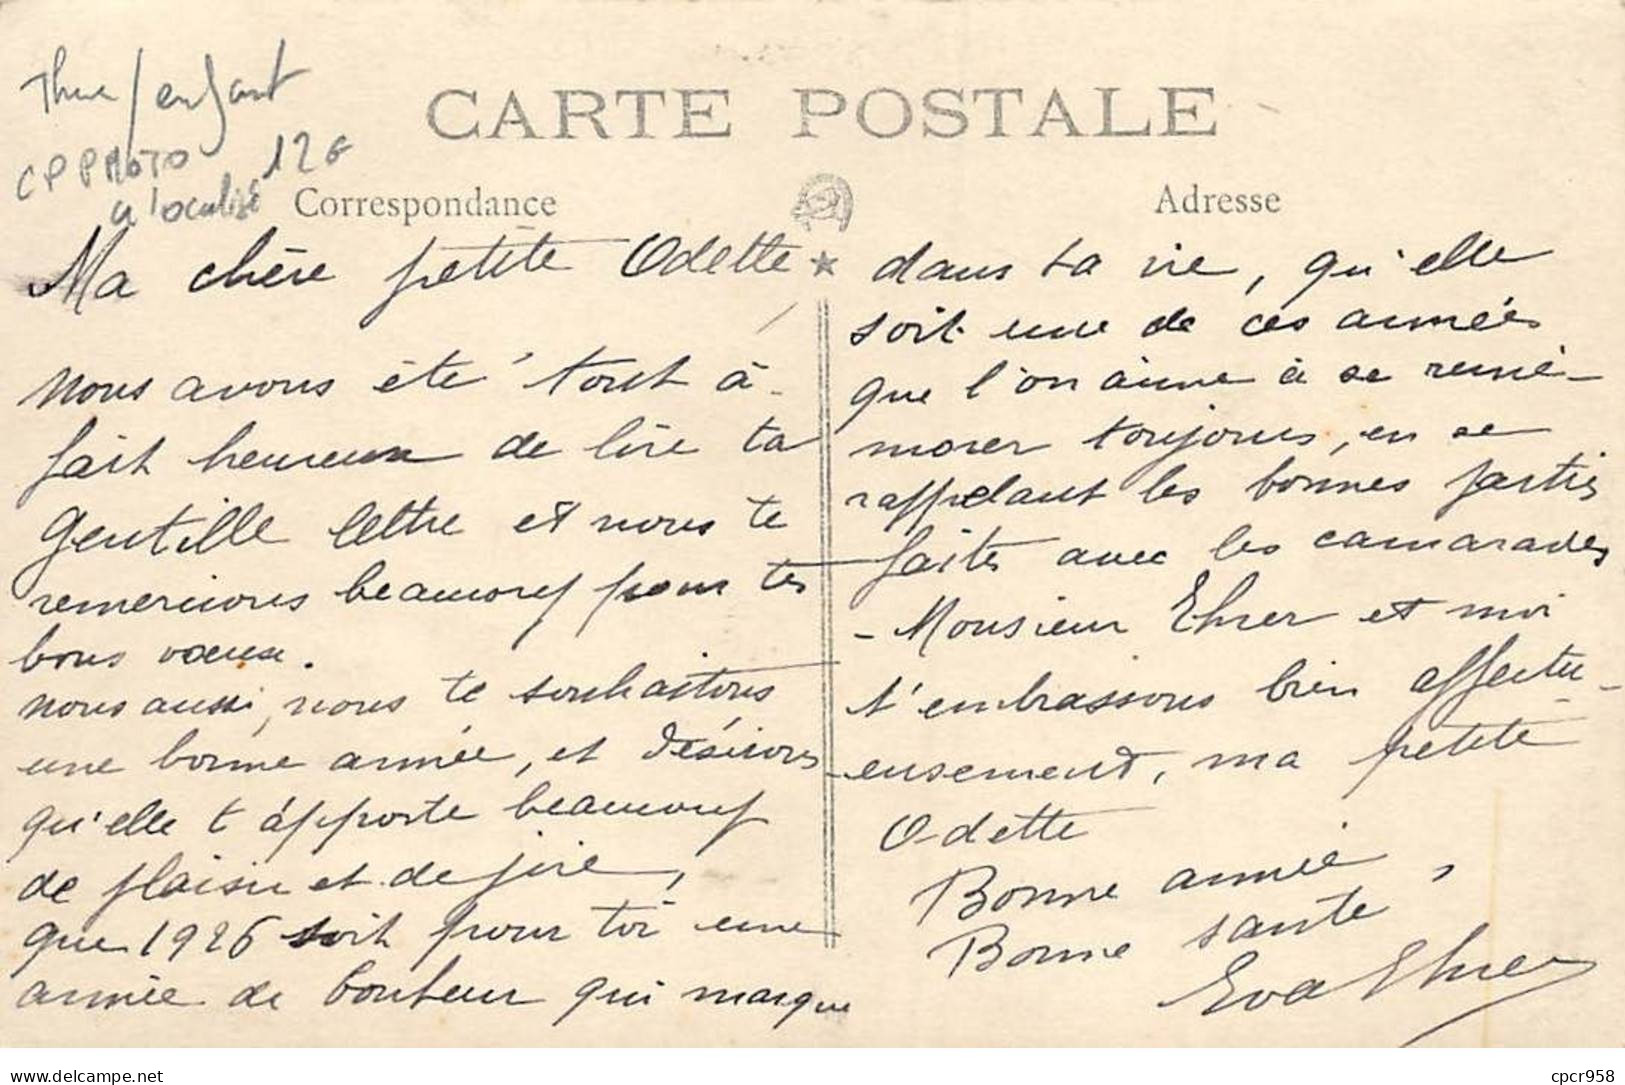 Thème / enfant
CP PHOTO 12€
a localisé
CARTE POSTALE
Correspondance
Adresse
Ma chère petite Odette
Nous avons été tout à-
fait heureux de lire ta
gentille lettre et nous te
remercions beaucoup pour tes
bons vœux.
nous aussi, nous te souhaitons
une bonne année, et désirons
qu'elle t'apporte beaucoup
de plaisir et de joie,
que 1926 soit pour toi une
année de bonheur qui marque
dans ta vie, qu'elle
soit une de ces années
que l'on aime à se remé-
morer toujours, en se
rappelant les bonnes parties
faites avec les camarades
- Monsieur Ehrer et moi
t'embrassons bien affectu-
eusement, ma petite
Odette
Bonne année,
Bonne santé
Eva Ehrer
delcampe.net
cpcr958